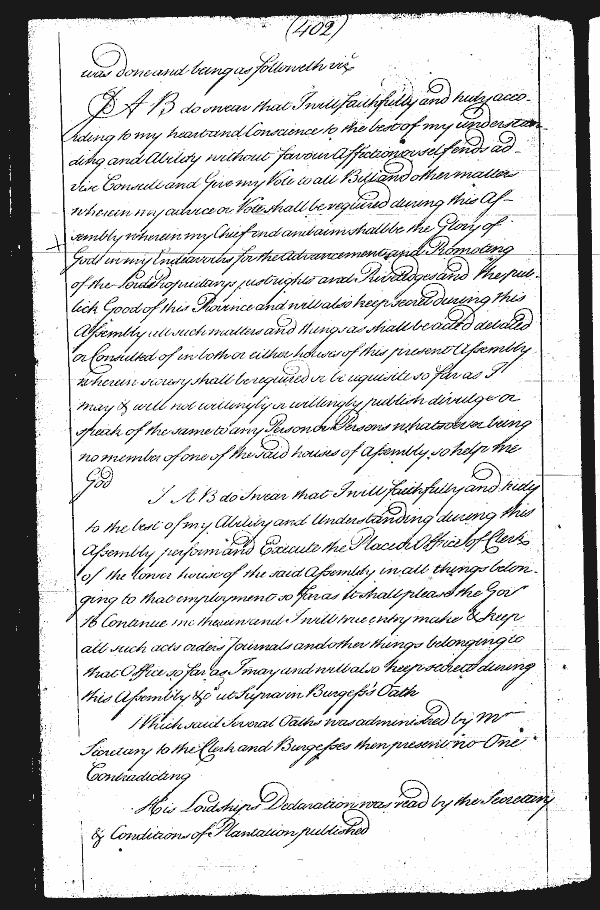 (402)
was done and being as followeth viz
I A B do swear that I will faithfully and truly acco-
rding to my heart and Conscience to the best of my understan-
ding and Ability without favour Affection or self ends ad-
vise Consult and Give my Vote to all Bills and other matters
wherein my advice or Vote shall be required during this As-
sembly wherein my Chief end and aim shall be the Glory of
God in my Endeavours for the Advancement and Promoting
of the Lord Proprietarys just rights and Priviledges and the pub-
lick Good of this Province and will also keep secret during this
Assembly all such matters and things as shall be acted debated
or Consulted of in both or either houses of this present Assembly
wherein secresy shall be required or be requisite so far as I
may & will not willingly or wittingly publish divulge or
speak of the same to any Person or Persons whatsoever being
no member of one of the said houses of Assembly so help me
God
I A B do Swear that I will faithfully and truly
to the best of my Ability and Understanding during this
Assembly perform and Execute the Place or Office of Clerk
of the lower house of the said Assembly in all things belon-
ging to that employment so far as it shall please the Govr
to Continue me therein and I will true entry make & keep
all such acts orders Journals and other things belonging to
that Office so far as I may and will also keep secret during
this Assembly &c ut supra in Burgess's Oath
Which said several Oaths was administred by Mr
Secretary to the Clerk and Burgesses then present no One
Contradicting
His Lordships Declaration was read by the Secretary
& Conditions of Plantation published